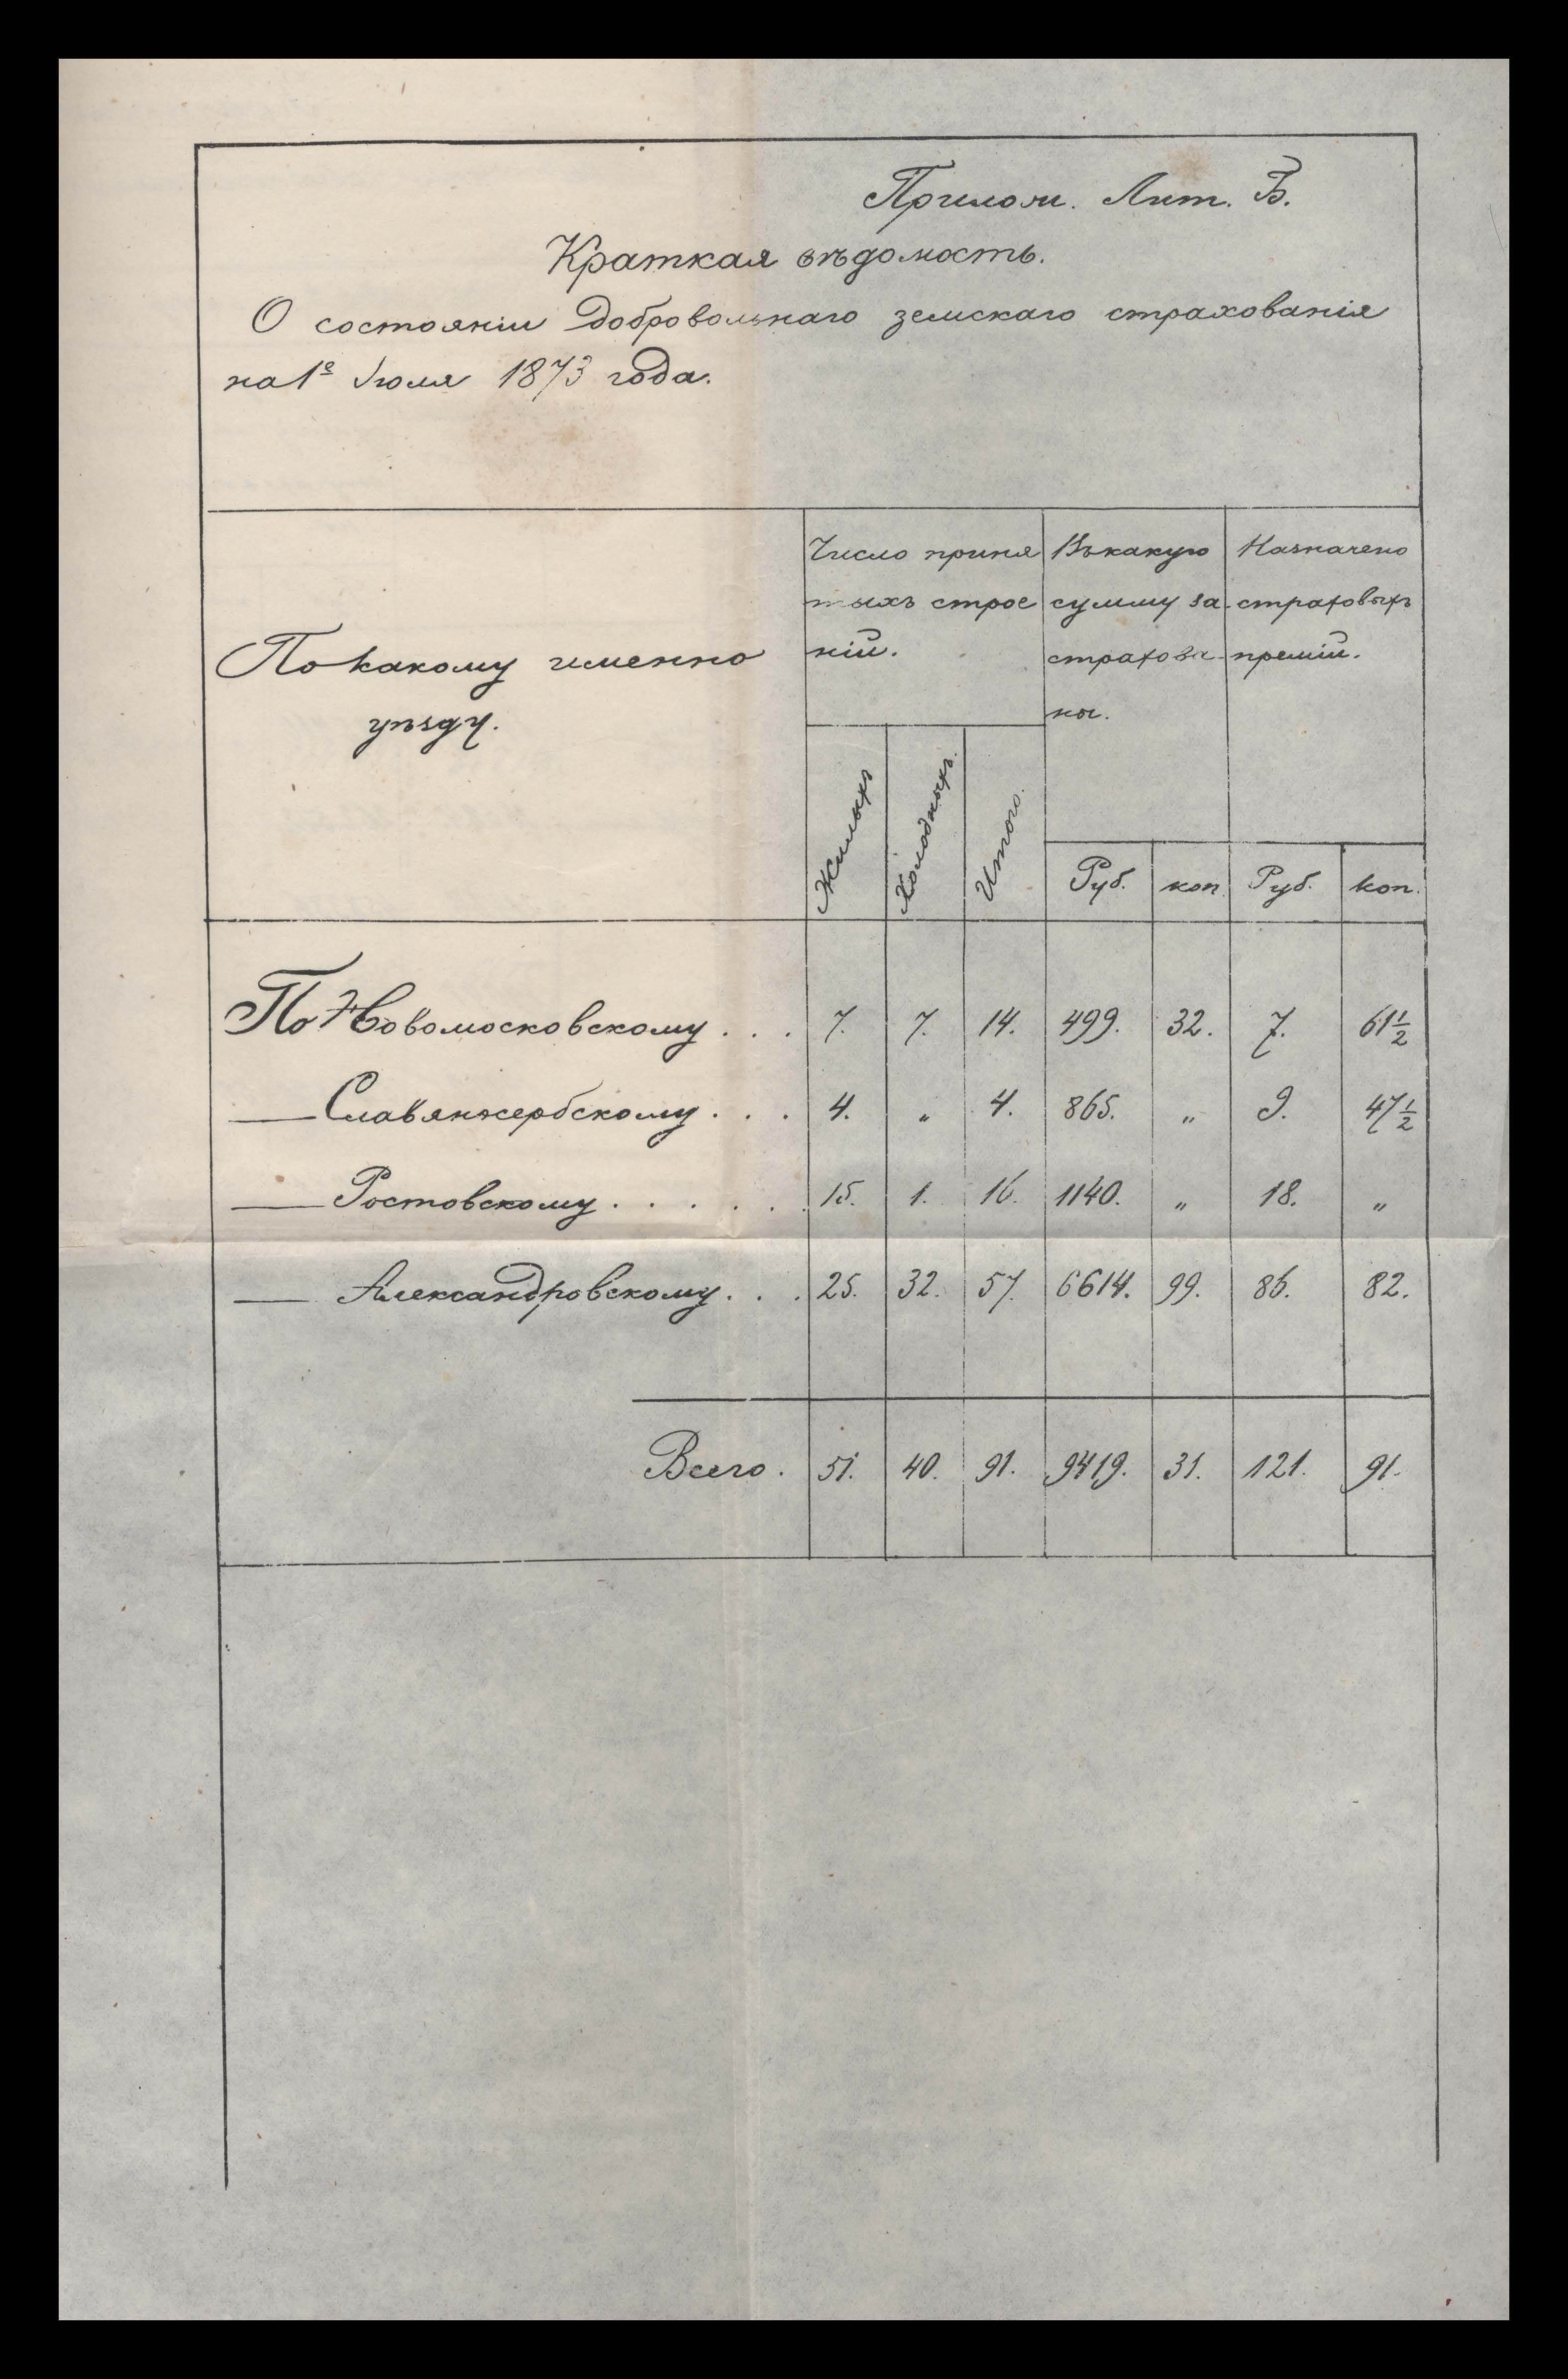 Прилож. Лит. Б.
Краткая вѣдомость.
О состояніи добровольнаго земскаго страхованія
на 1е Іюля 1873 года.
По какому именно
уѣзду.
Число приня
тыхъ строе
ній.
Въ какую
сумму за-
страхова-
ны.
Назначено
страховыхъ
премій.
Жилыхъ Холодныхъ. Итого. Руб. коп. Руб. коп.
По Новомосковскому . . . 7. 7. 14. 499. 32. 7. 61 1/2
— Славяносербскому . . . 4. „ 4. 865. „ 9. 47 1/2
— Ростовскому . . . . . . 15. 1. 16. 1140. „ 18. „
— Александровскому . . . 25. 32. 57. 6614. 99. 86. 82.
Всего. 51. 40. 91. 9419. 31. 121. 91.